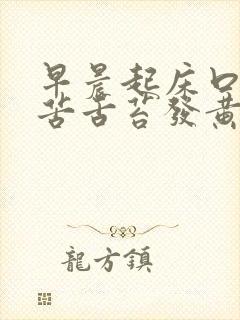 早晨起床口
苦舌苔發黃
龍方鎮